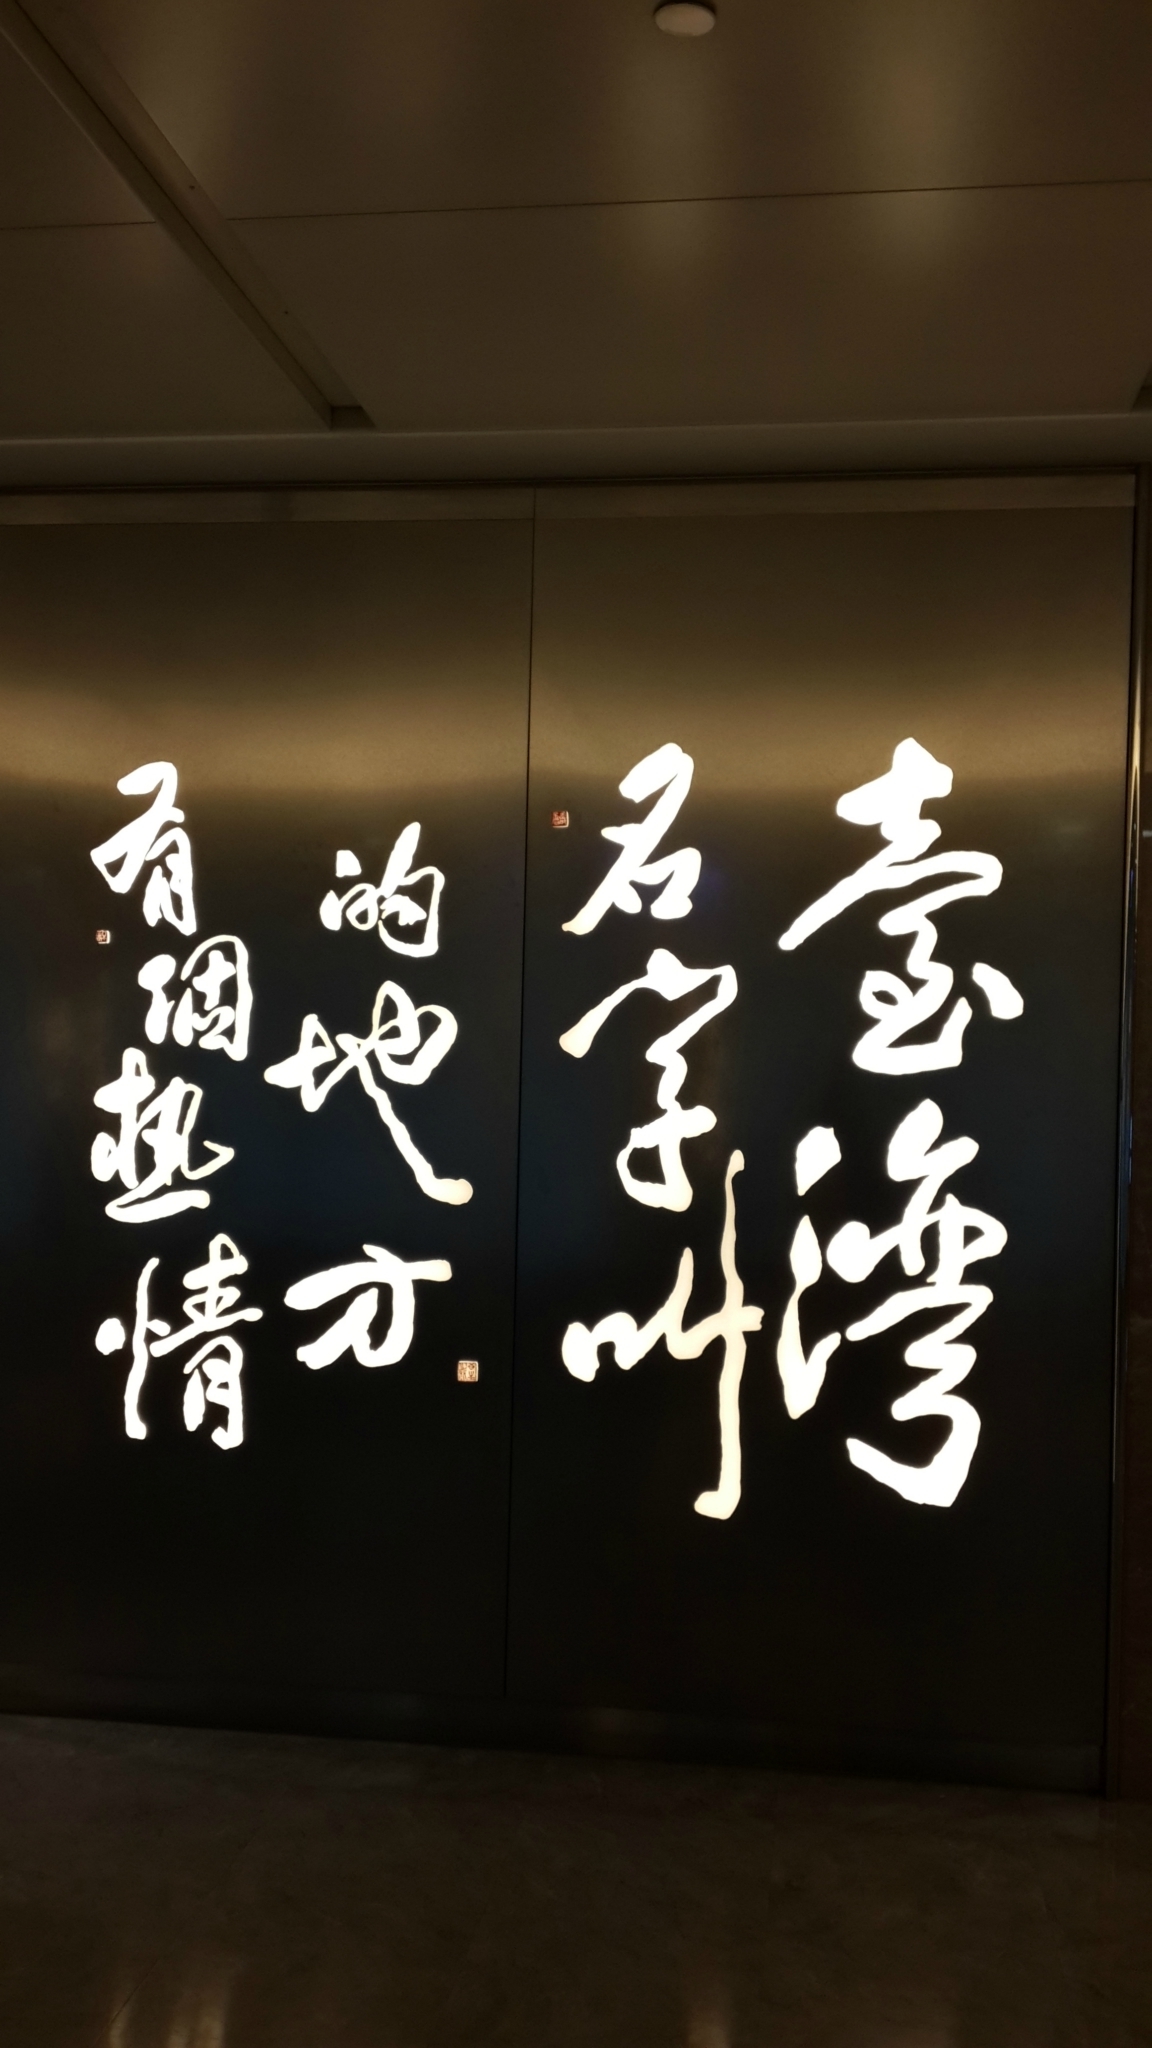 有個熱情
的地方
名字叫
臺灣